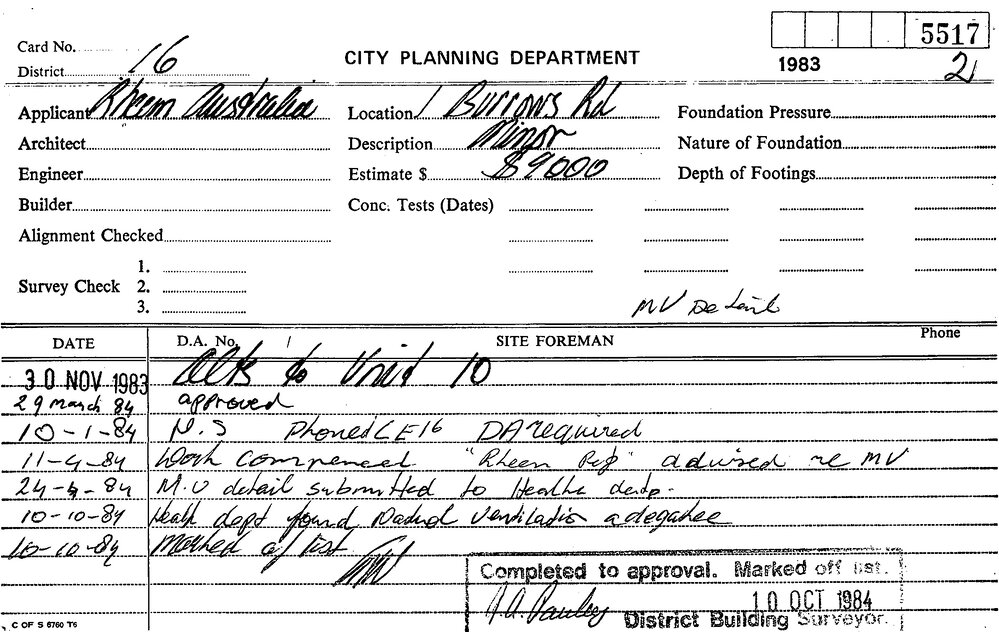 5517
Card No. 16
District
CITY PLANNING DEPARTMENT
1983
2
Applicant Rheem Australia Location 1 Burrows Rd Foundation Pressure
Architect Description Minor Nature of Foundation
Engineer Estimate $ $9000 Depth of Footings
Builder Conc. Tests (Dates)
Alignment Checked
1.
Survey Check 2.
3.
MV Detail
DATE D.A. No. SITE FOREMAN Phone
30 NOV 1983 Alts to Unit 10
29 March 84 approved
10-1-84 N.S Phoned LE16 DA required
11-4-84 Work commenced "Rheem Rep" advised re MV
24-4-84 M.V detail submitted to Health dept.
10-10-84 Health dept found Natural Ventilation adequate
10-10-84 Marked of list
Completed to approval. Marked off list.
10 OCT 1984
District Building Surveyor.
C OF S 6760 T6